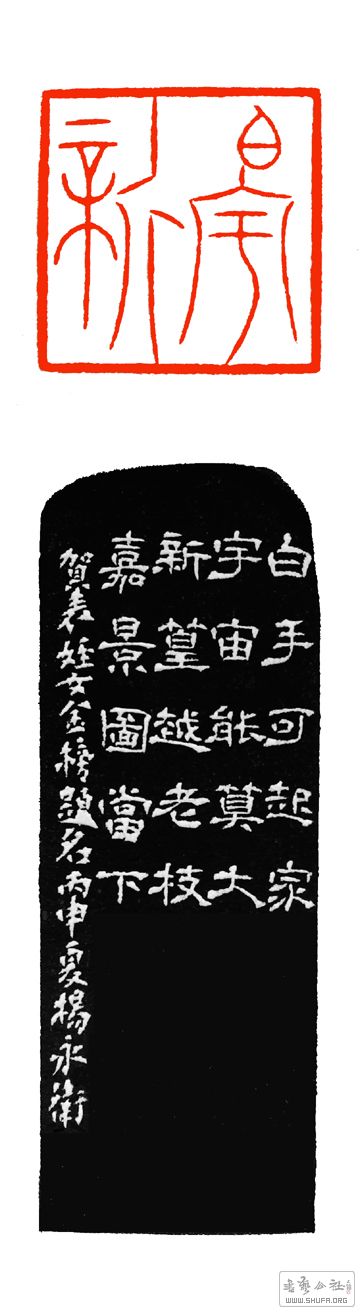 白宇
新
白手可起家
宇宙能莫大
新篁越老枝
嘉景圖當下
賀表姪女金榜題名丙申夏楊永衛
书艺公社
WWW.SHUFA.ORG